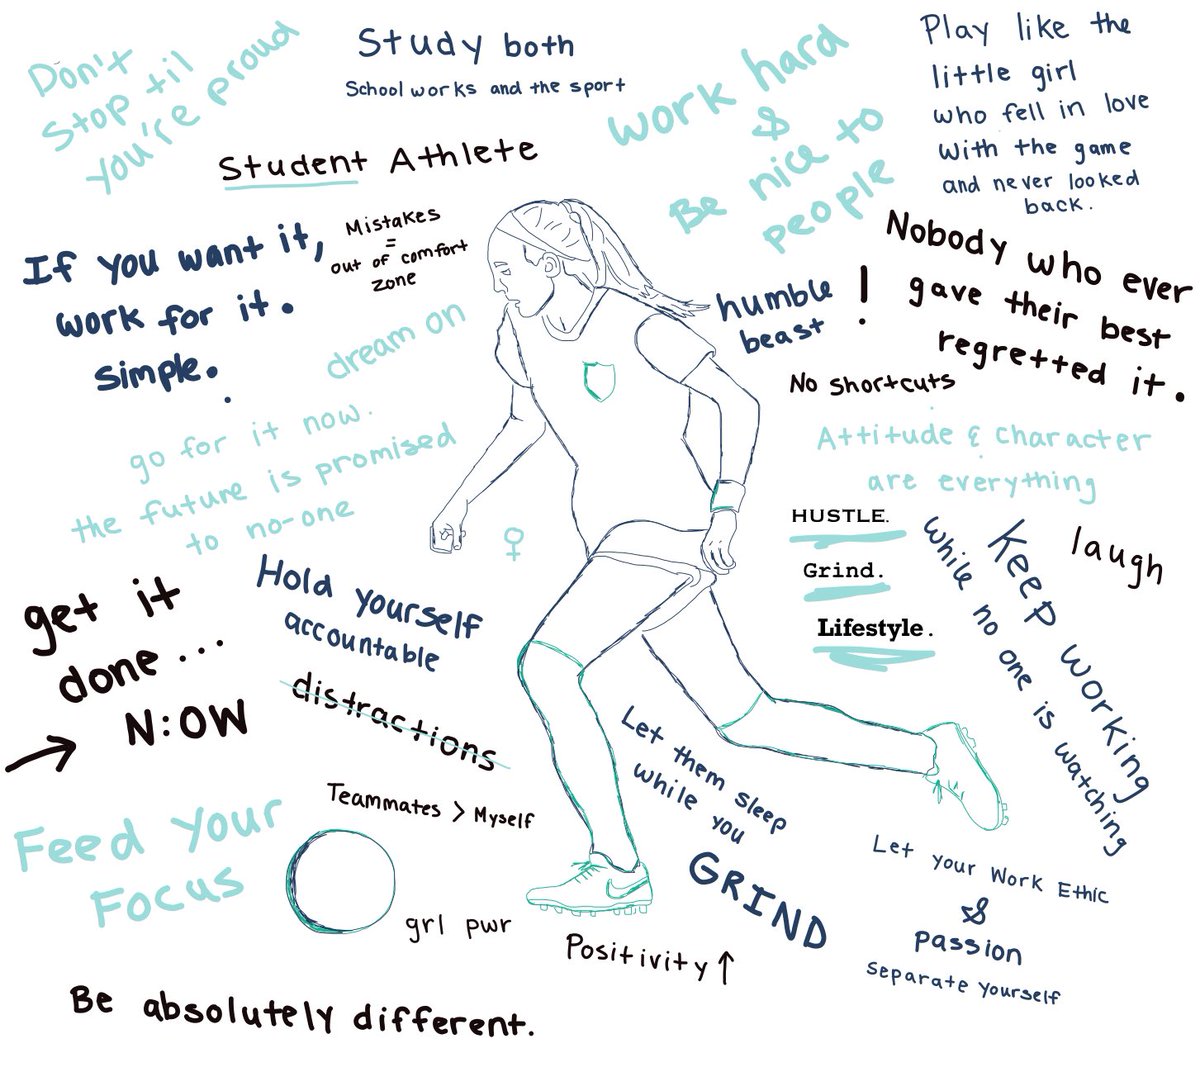 Don't
stop til
you're proud
Study both
School works and the sport
Student Athlete
work hard
&
Be nice to
people
Play like the
little girl
who fell in love
with the game
and never looked
back.
If you want it,
work for it.
simple.
Mistakes
=
out of comfort
zone
dream on
humble
beast !
Nobody who ever
gave their best
regretted it.
No shortcuts
go for it now.
the future is promised
to no-one
Attitude & character
are everything
HUSTLE.
Grind.
Lifestyle.
Keep working
while no one is watching
laugh
get it
done...
N:OW
Hold yourself
accountable
distractions
Let them sleep
while you
GRIND
Teammates > Myself
Feed your
Focus
grl pwr
Positivity ↑
Let your Work Ethic
&
passion
separate yourself
Be absolutely different.